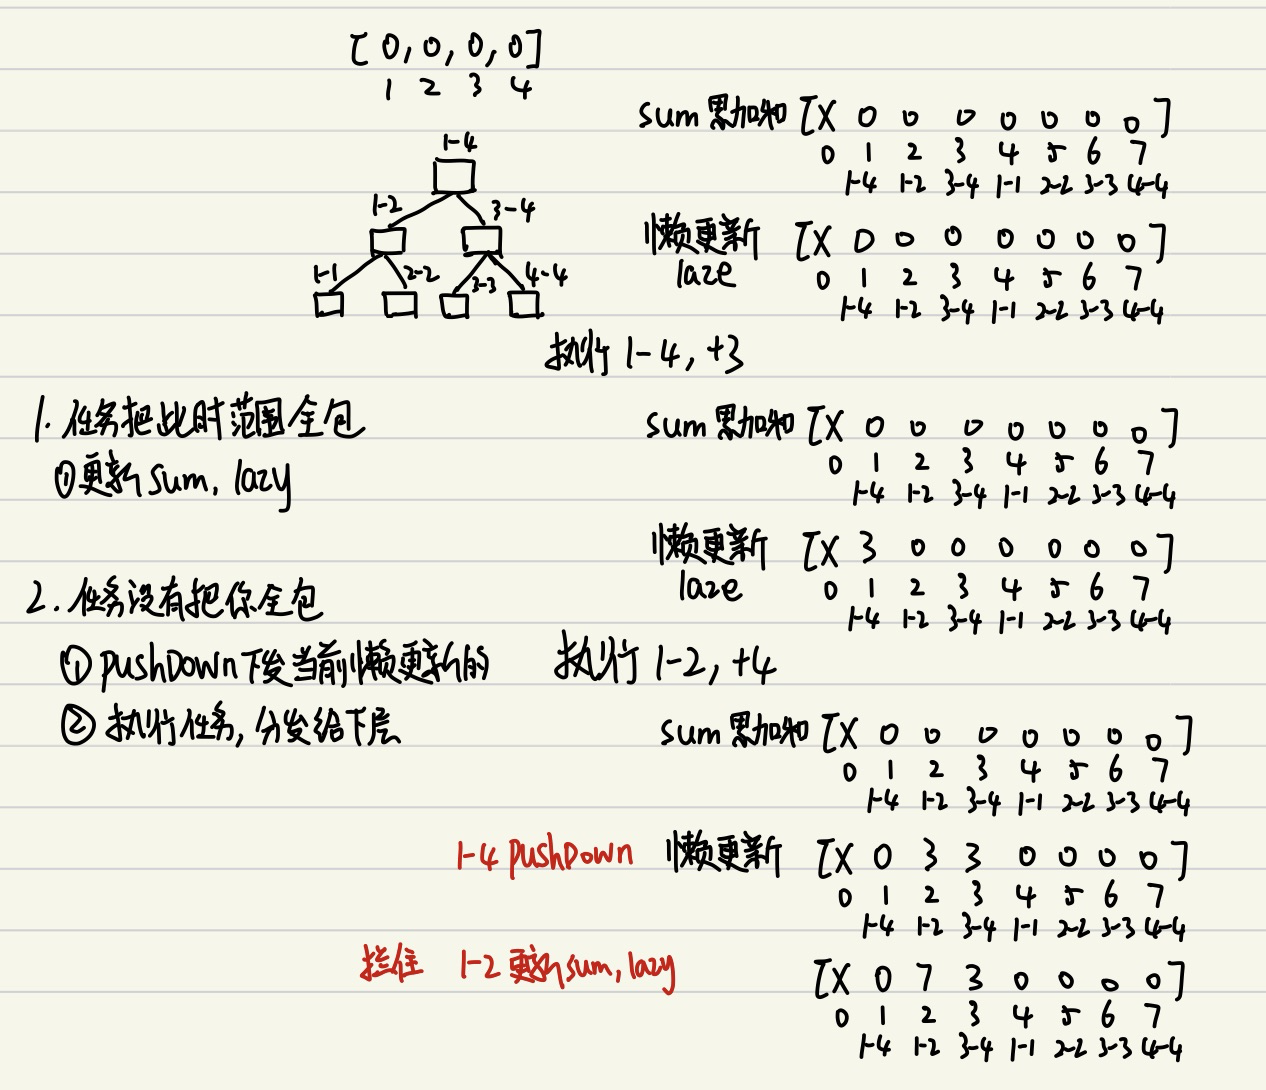 [0,0,0,0]
1 2 3 4
sum 累加和 [X 0 0 0 0 0 0 0]
0 1 2 3 4 5 6 7
1-4 1-2 3-4 1-1 2-2 3-3 4-4
1-4
1-2 3-4
1-1 2-2 3-3 4-4
懒更新 [X 0 0 0 0 0 0 0]
laze 0 1 2 3 4 5 6 7
1-4 1-2 3-4 1-1 2-2 3-3 4-4
执行 1-4, +3
1. 任务把此时范围全包
① 更新 sum, lazy
sum 累加和 [X 0 0 0 0 0 0 0]
0 1 2 3 4 5 6 7
1-4 1-2 3-4 1-1 2-2 3-3 4-4
懒更新 [X 3 0 0 0 0 0 0]
laze 0 1 2 3 4 5 6 7
1-4 1-2 3-4 1-1 2-2 3-3 4-4
2. 任务没有把你全包
① pushDown 下发当前懒更新的
② 执行任务, 分发给下层
执行 1-2, +4
sum 累加和 [X 0 0 0 0 0 0 0]
0 1 2 3 4 5 6 7
1-4 1-2 3-4 1-1 2-2 3-3 4-4
1-4 pushDown 懒更新 [X 0 3 3 0 0 0 0]
0 1 2 3 4 5 6 7
1-4 1-2 3-4 1-1 2-2 3-3 4-4
拦住 1-2 更新 sum, lazy [X 0 7 3 0 0 0 0]
0 1 2 3 4 5 6 7
1-4 1-2 3-4 1-1 2-2 3-3 4-4